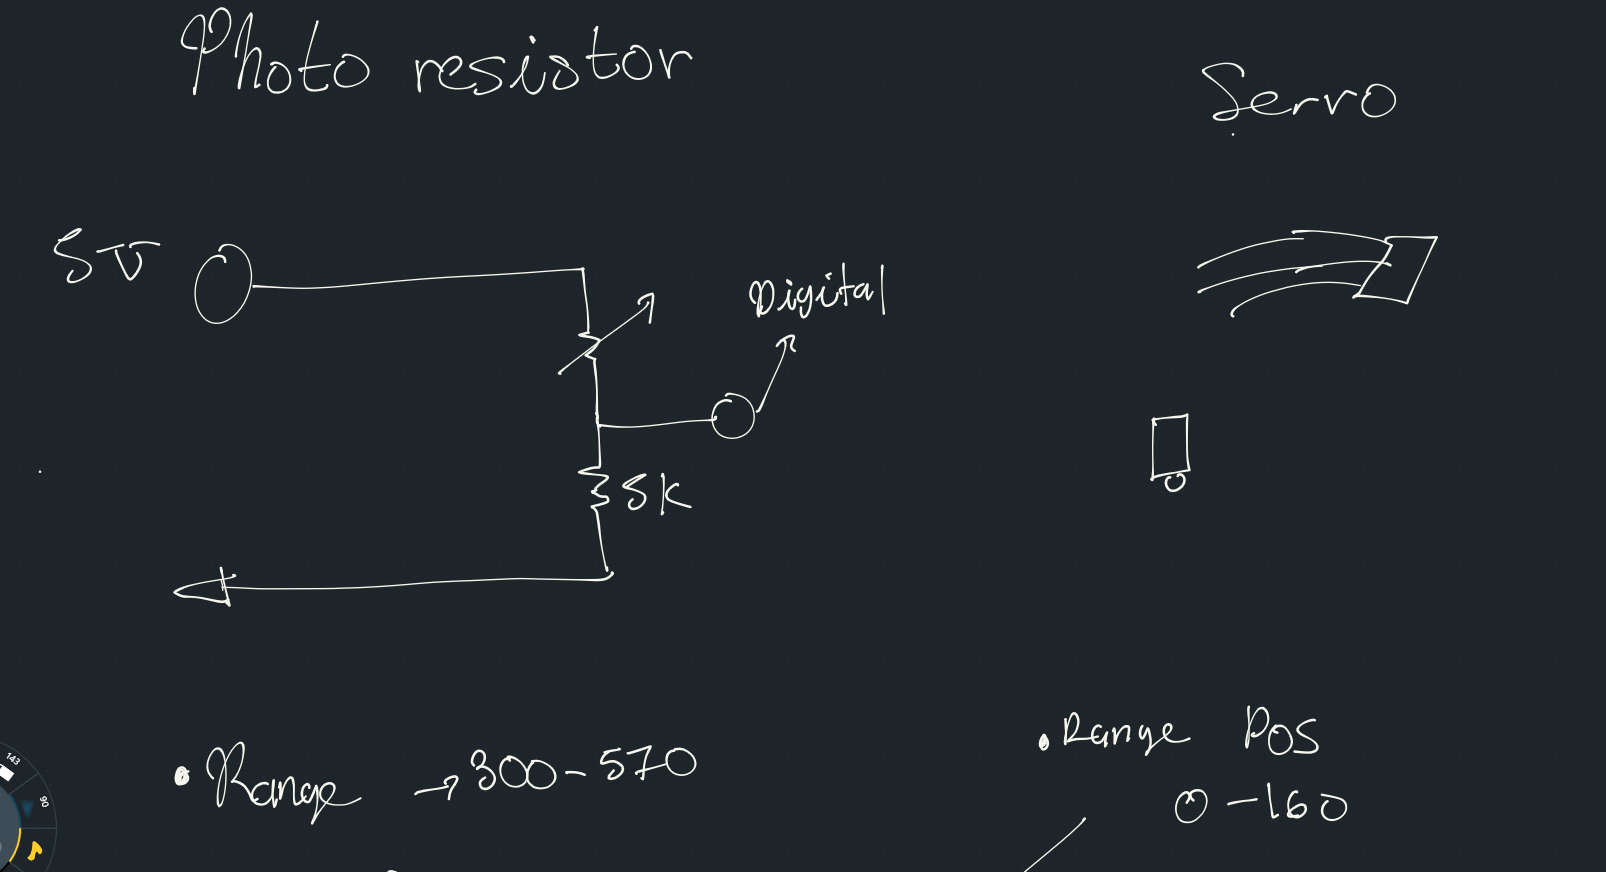 Photo resistor
Servo
5V
Digital
5K
• Range → 300-570
• Range Pos
0-160
143
90